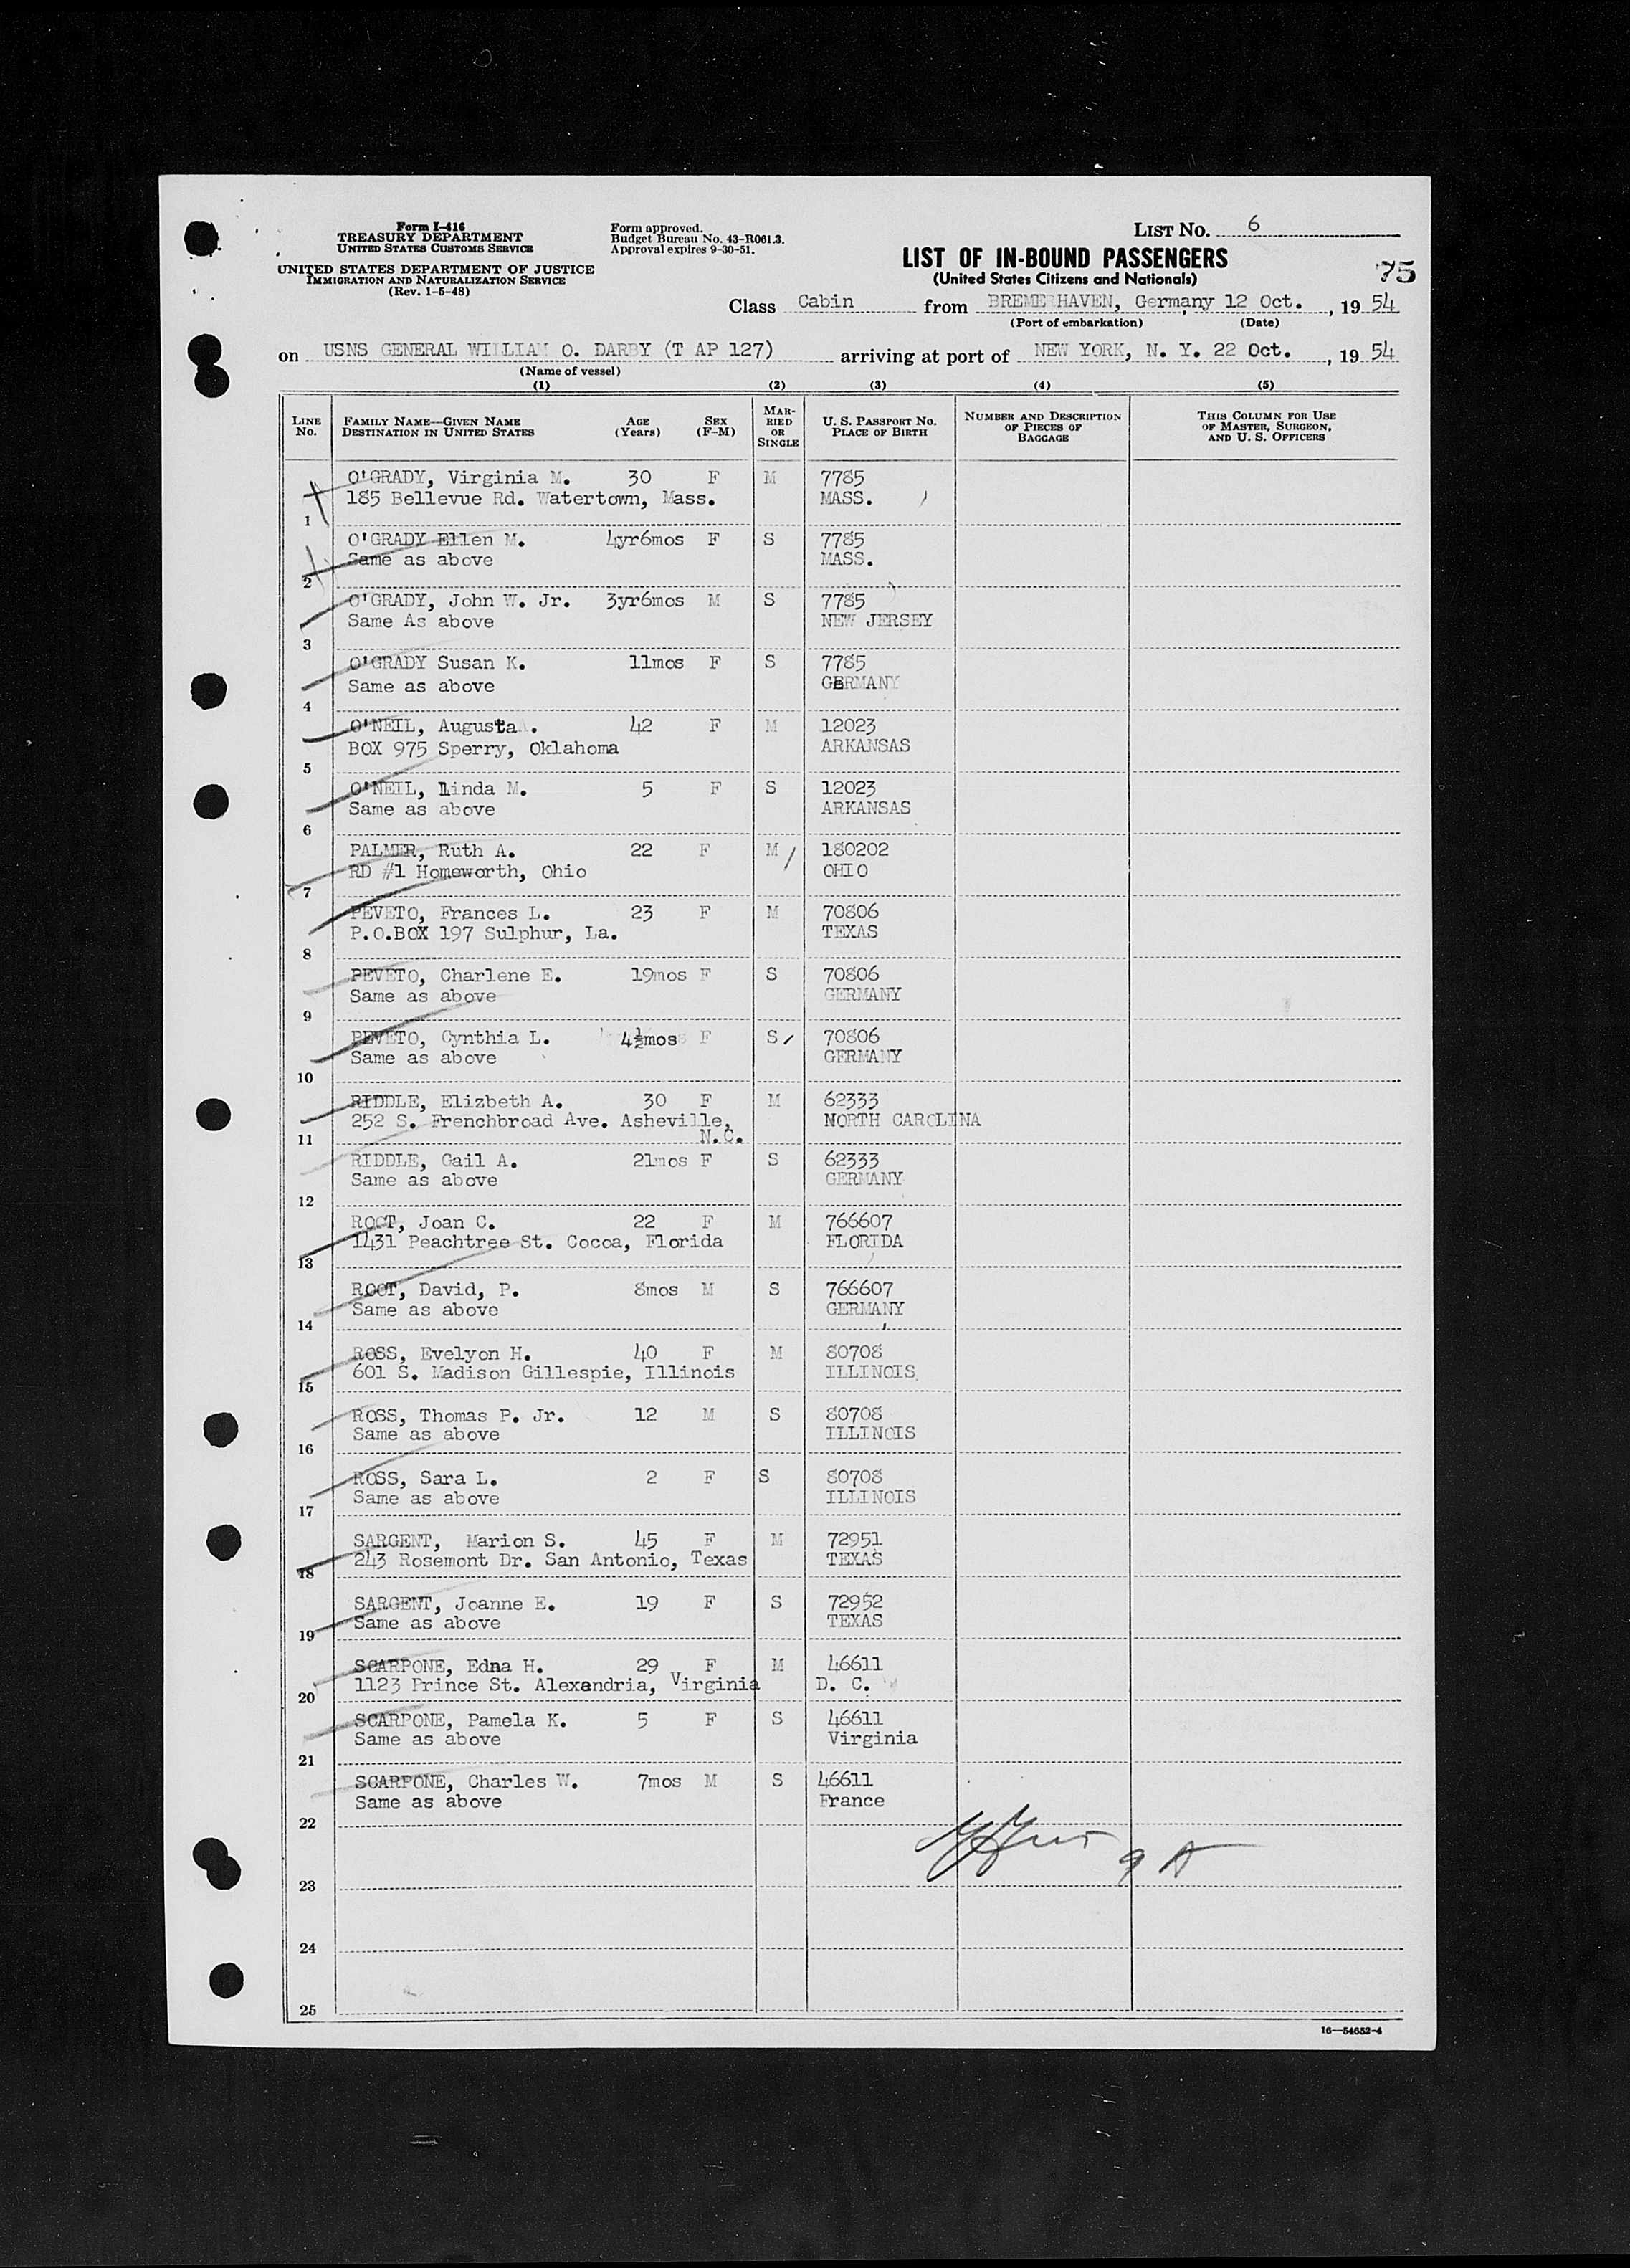 Form I-416
TREASURY DEPARTMENT
UNITED STATES CUSTOMS SERVICE
UNITED STATES DEPARTMENT OF JUSTICE
IMMIGRATION AND NATURALIZATION SERVICE
(Rev. 1-5-48)
Form approved.
Budget Bureau No. 43-R061.3.
Approval expires 9-30-51.
LIST NO. 6
LIST OF IN-BOUND PASSENGERS
(United States Citizens and Nationals)
75
Class Cabin from BREMERHAVEN, Germany, 12 Oct. , 19 54
(Port of embarkation) (Date)
on USNS GENERAL WILLIAM O. DARBY (T AP 127) arriving at port of NEW YORK, N. Y. 22 Oct. , 19 54
(Name of vessel)
(1) (2) (3) (4) (5)
LINE NO. FAMILY NAME—GIVEN NAME DESTINATION IN UNITED STATES AGE (Years) SEX (F-M) MARRIED OR SINGLE U. S. PASSPORT NO. PLACE OF BIRTH NUMBER AND DESCRIPTION OF PIECES OF BAGGAGE THIS COLUMN FOR USE OF MASTER, SURGEON, AND U. S. OFFICERS
O'GRADY, Virginia M. 30 F M 7785
185 Bellevue Rd. Watertown, Mass. MASS.
1
O'GRADY Ellen M. 4yr6mos F S 7785
Same as above MASS.
2
O'GRADY, John W. Jr. 3yr6mos M S 7785
Same As above NEW JERSEY
3
O'GRADY Susan K. 11mos F S 7785
Same as above GERMANY
4
O'NEIL, Augusta . 42 F M 12023
BOX 975 Sperry, Oklahoma ARKANSAS
5
O'NEIL, Linda M. 5 F S 12023
Same as above ARKANSAS
6
PALMER, Ruth A. 22 F M 180202
RD #1 Homeworth, Ohio OHIO
7
PEVETO, Frances L. 23 F M 70806
P.O.BOX 197 Sulphur, La. TEXAS
8
PEVETO, Charlene E. 19mos F S 70806
Same as above GERMANY
9
PEVETO, Cynthia L. 4½mos F S 70806
Same as above GERMANY
10
RIDDLE, Elizbeth A. 30 F M 62333
252 S. Frenchbroad Ave. Asheville, NORTH CAROLINA
N.C.
11
RIDDLE, Gail A. 21mos F S 62333
Same as above GERMANY
12
ROOT, Joan C. 22 F M 766607
1431 Peachtree St. Cocoa, Florida FLORIDA
13
ROOT, David, P. 8mos M S 766607
Same as above GERMANY
14
ROSS, Evelyon H. 40 F M 80708
601 S. Madison Gillespie, Illinois ILLINOIS
15
ROSS, Thomas P. Jr. 12 M S 80708
Same as above ILLINOIS
16
ROSS, Sara L. 2 F S 80708
Same as above ILLINOIS
17
SARGENT, Marion S. 45 F M 72951
243 Rosemont Dr. San Antonio, Texas TEXAS
18
SARGENT, Joanne E. 19 F S 72952
Same as above TEXAS
19
SCARPONE, Edna H. 29 F M 46611
1123 Prince St. Alexandria, Virginia D. C.
20
SCARPONE, Pamela K. 5 F S 46611
Same as above Virginia
21
SCARPONE, Charles W. 7mos M S 46611
Same as above France
22
23
24
25
16—54652-4